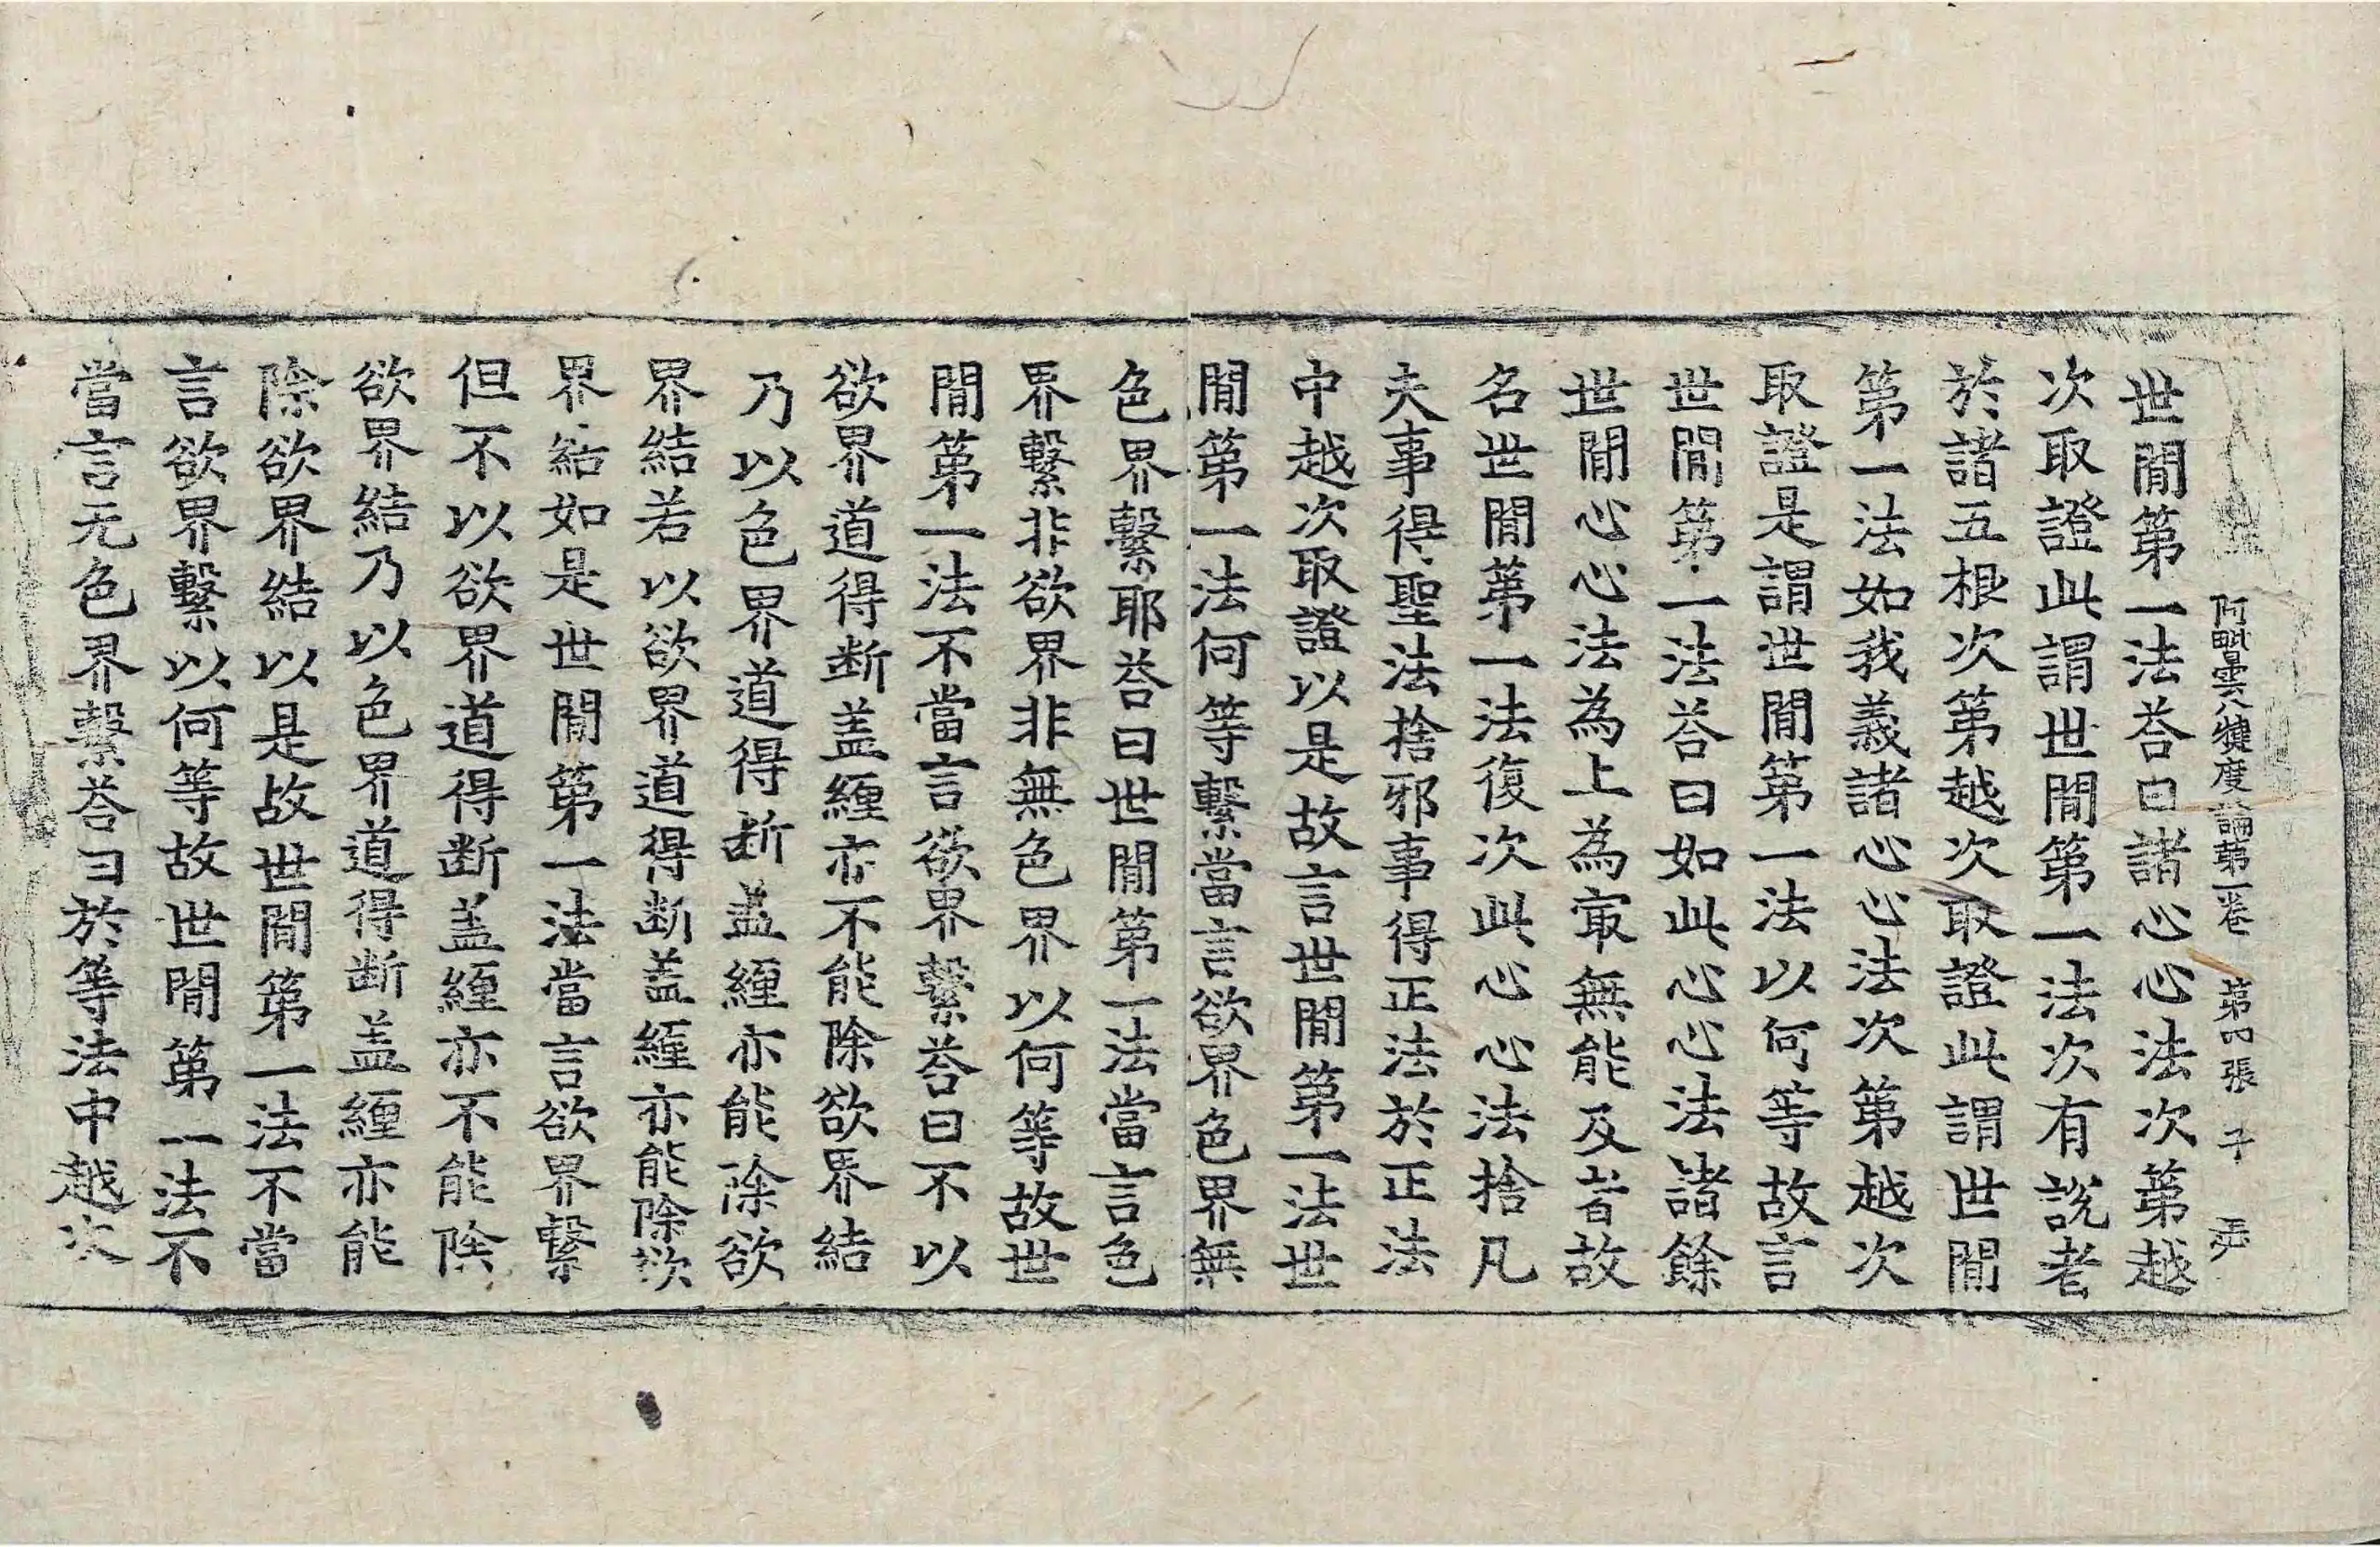 阿毗曇八犍度論第一卷　第四張　子
世間第一法荅曰諸心心法次第越
次取證此謂世間第一法次有說者
於諸五根次第越次取證此謂世間
第一法如我義諸心心法次第越次
取證是謂世間第一法以何等故言
世間第一法荅曰如此心心法諸餘
世間心心法為上為㝡無能及者故
名世間第一法復次此心心法捨凡
夫事得聖法捨邪事得正法於正法
中越次取證以是故言世間第一法世
間第一法何等繫當言欲界色界無
色界繫耶荅曰世間第一法當言色
界繫非欲界非無色界以何等故世
間第一法不當言欲界繫荅曰不以
欲界道得断盖纒亦不能除欲界結
乃以色界道得断盖纒亦能除欲
界結若以欲界道得断盖纒亦能除欲
界結如是世間第一法當言欲界繫
但不以欲界道得断盖纒亦不能除
欲界結乃以色界道得断盖纒亦能
除欲界結以是故世間第一法不當
言欲界繫以何等故世間第一法不
當言无色界繫荅曰於等法中越次